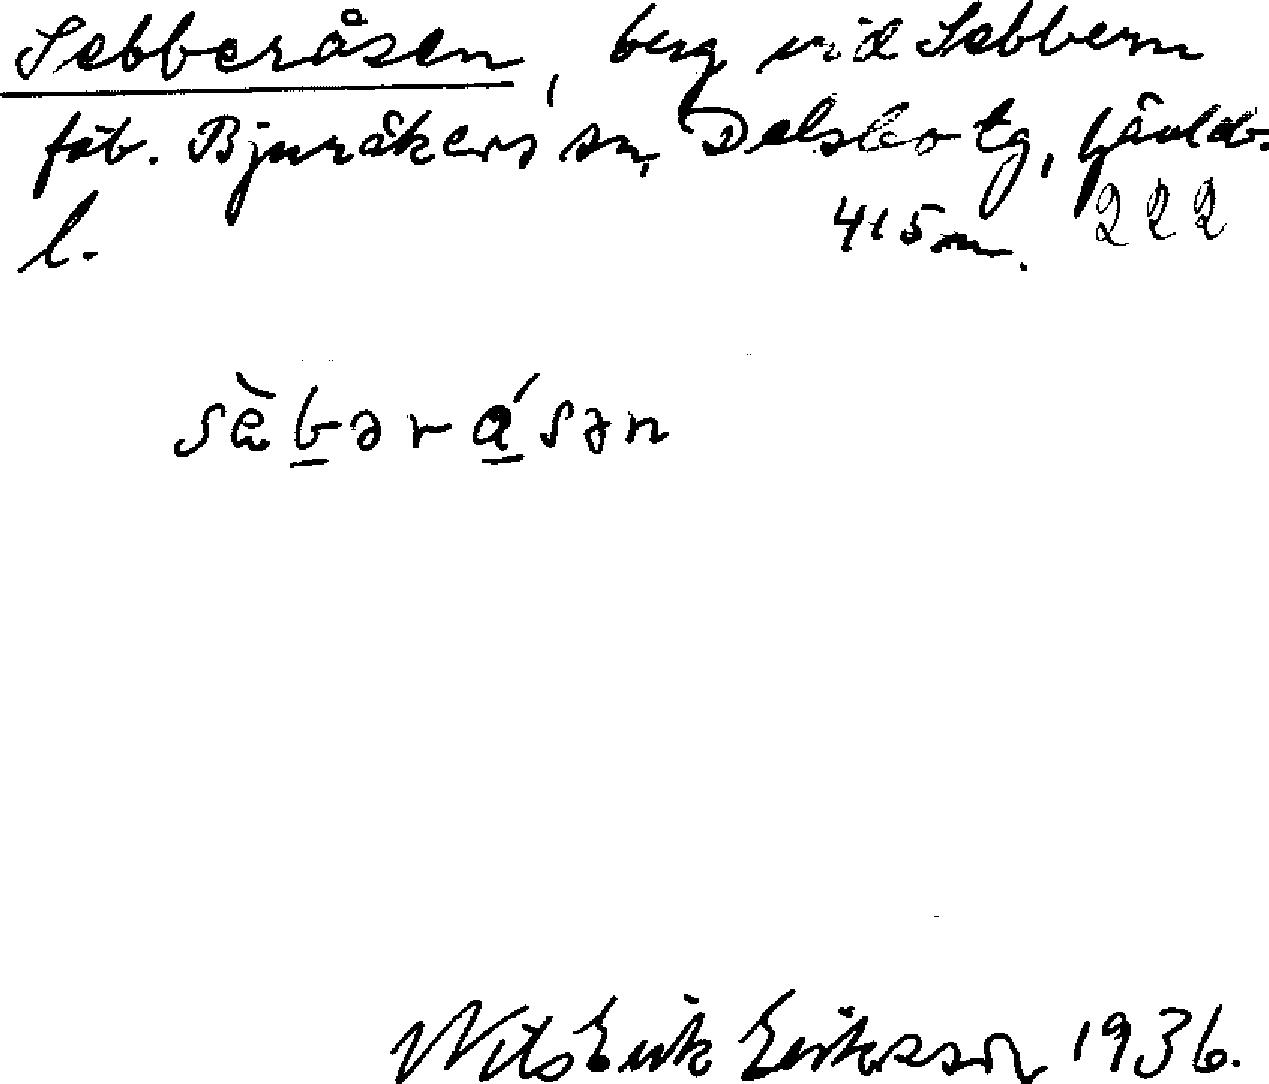 Sebberåsen, berg vid Sebbern
fäb. Bjuråkers sn, Delsbo tg, Gävleb.
l. 415 m. 222
sèbərásən
Nils Erik Eriksson 1936.